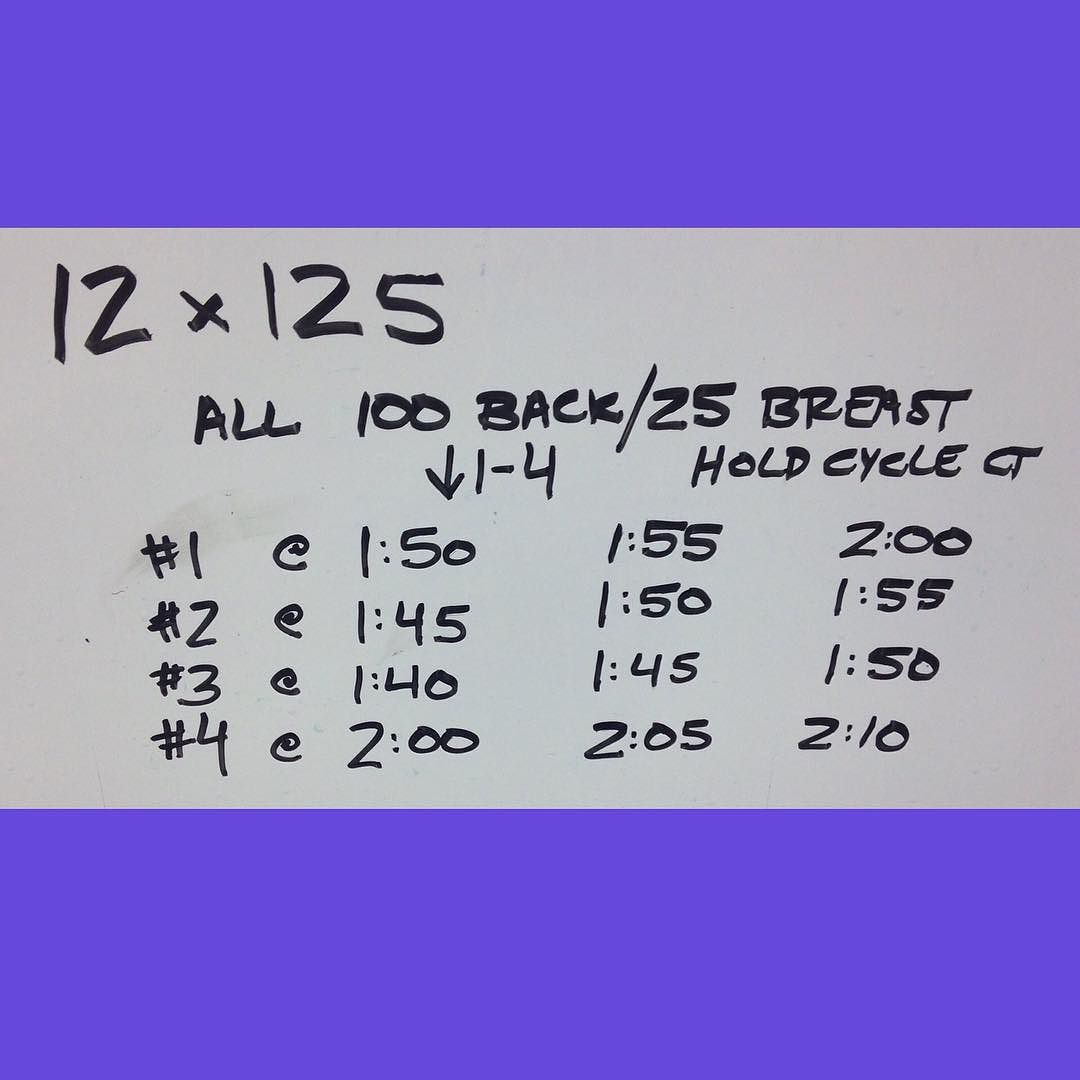 12 x 125
ALL 100 BACK/25 BREAST
↓1-4 HOLD CYCLE CT
#1 @ 1:50 1:55 2:00
#2 @ 1:45 1:50 1:55
#3 @ 1:40 1:45 1:50
#4 @ 2:00 2:05 2:10